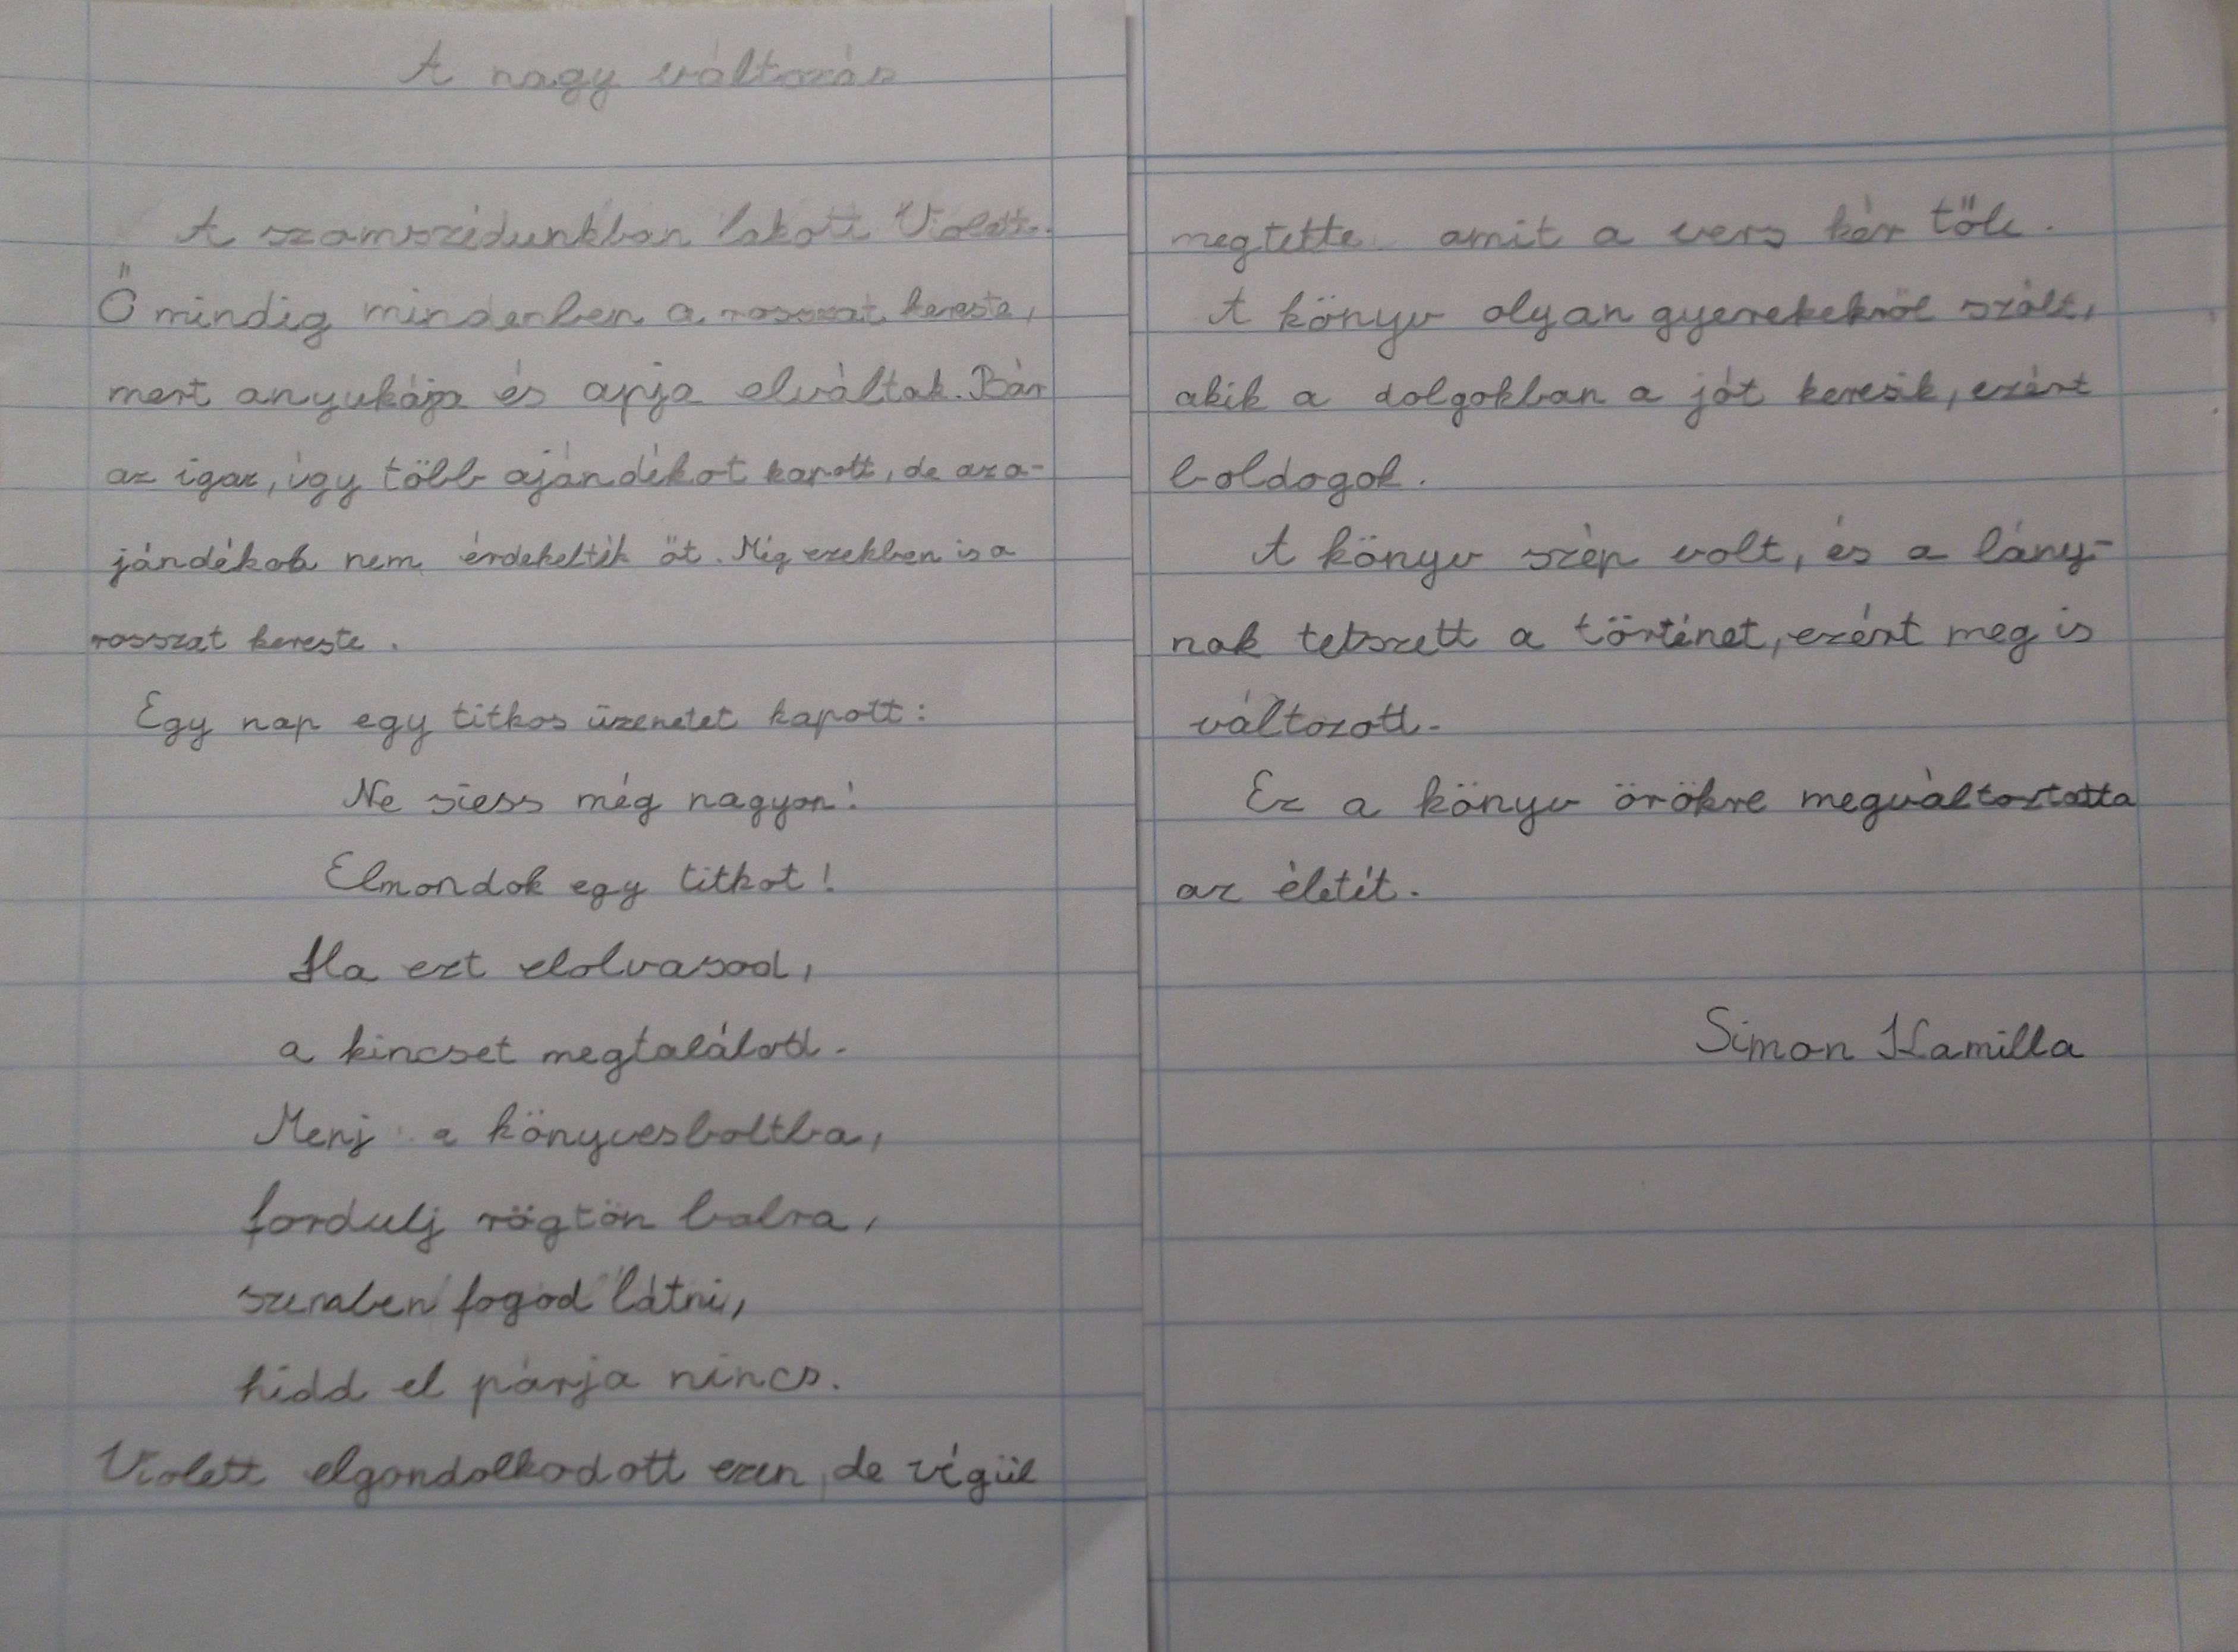 A nagy változás
A szomszédunkban lakott Violett.
Ő mindig mindenben a rosszat kereste,
mert anyukája és apja elváltak. Bár
az igaz, így több ajándékot kapott, de az a-
jándékok nem érdekelték őt. Még ezekben is a
rosszat kereste.
Egy nap egy titkos üzenetet kapott:
Ne siess még nagyon!
Elmondok egy titkot!
Ha ezt elolvasod,
a kincset megtalálod.
Menj a könyvesboltba,
fordulj rögtön balra,
szemben fogod látni,
hidd el párja nincs.
Violett elgondolkodott ezen, de végül
megtette amit a vers kér tőle.
A könyv olyan gyerekekről szólt,
akik a dolgokban a jót keresik, ezért
boldogok.
A könyv szép volt, és a lány-
nak tetszett a történet, ezért meg is
változott.
Ez a könyv örökre megváltoztatta
az életét.
Simon Kamilla